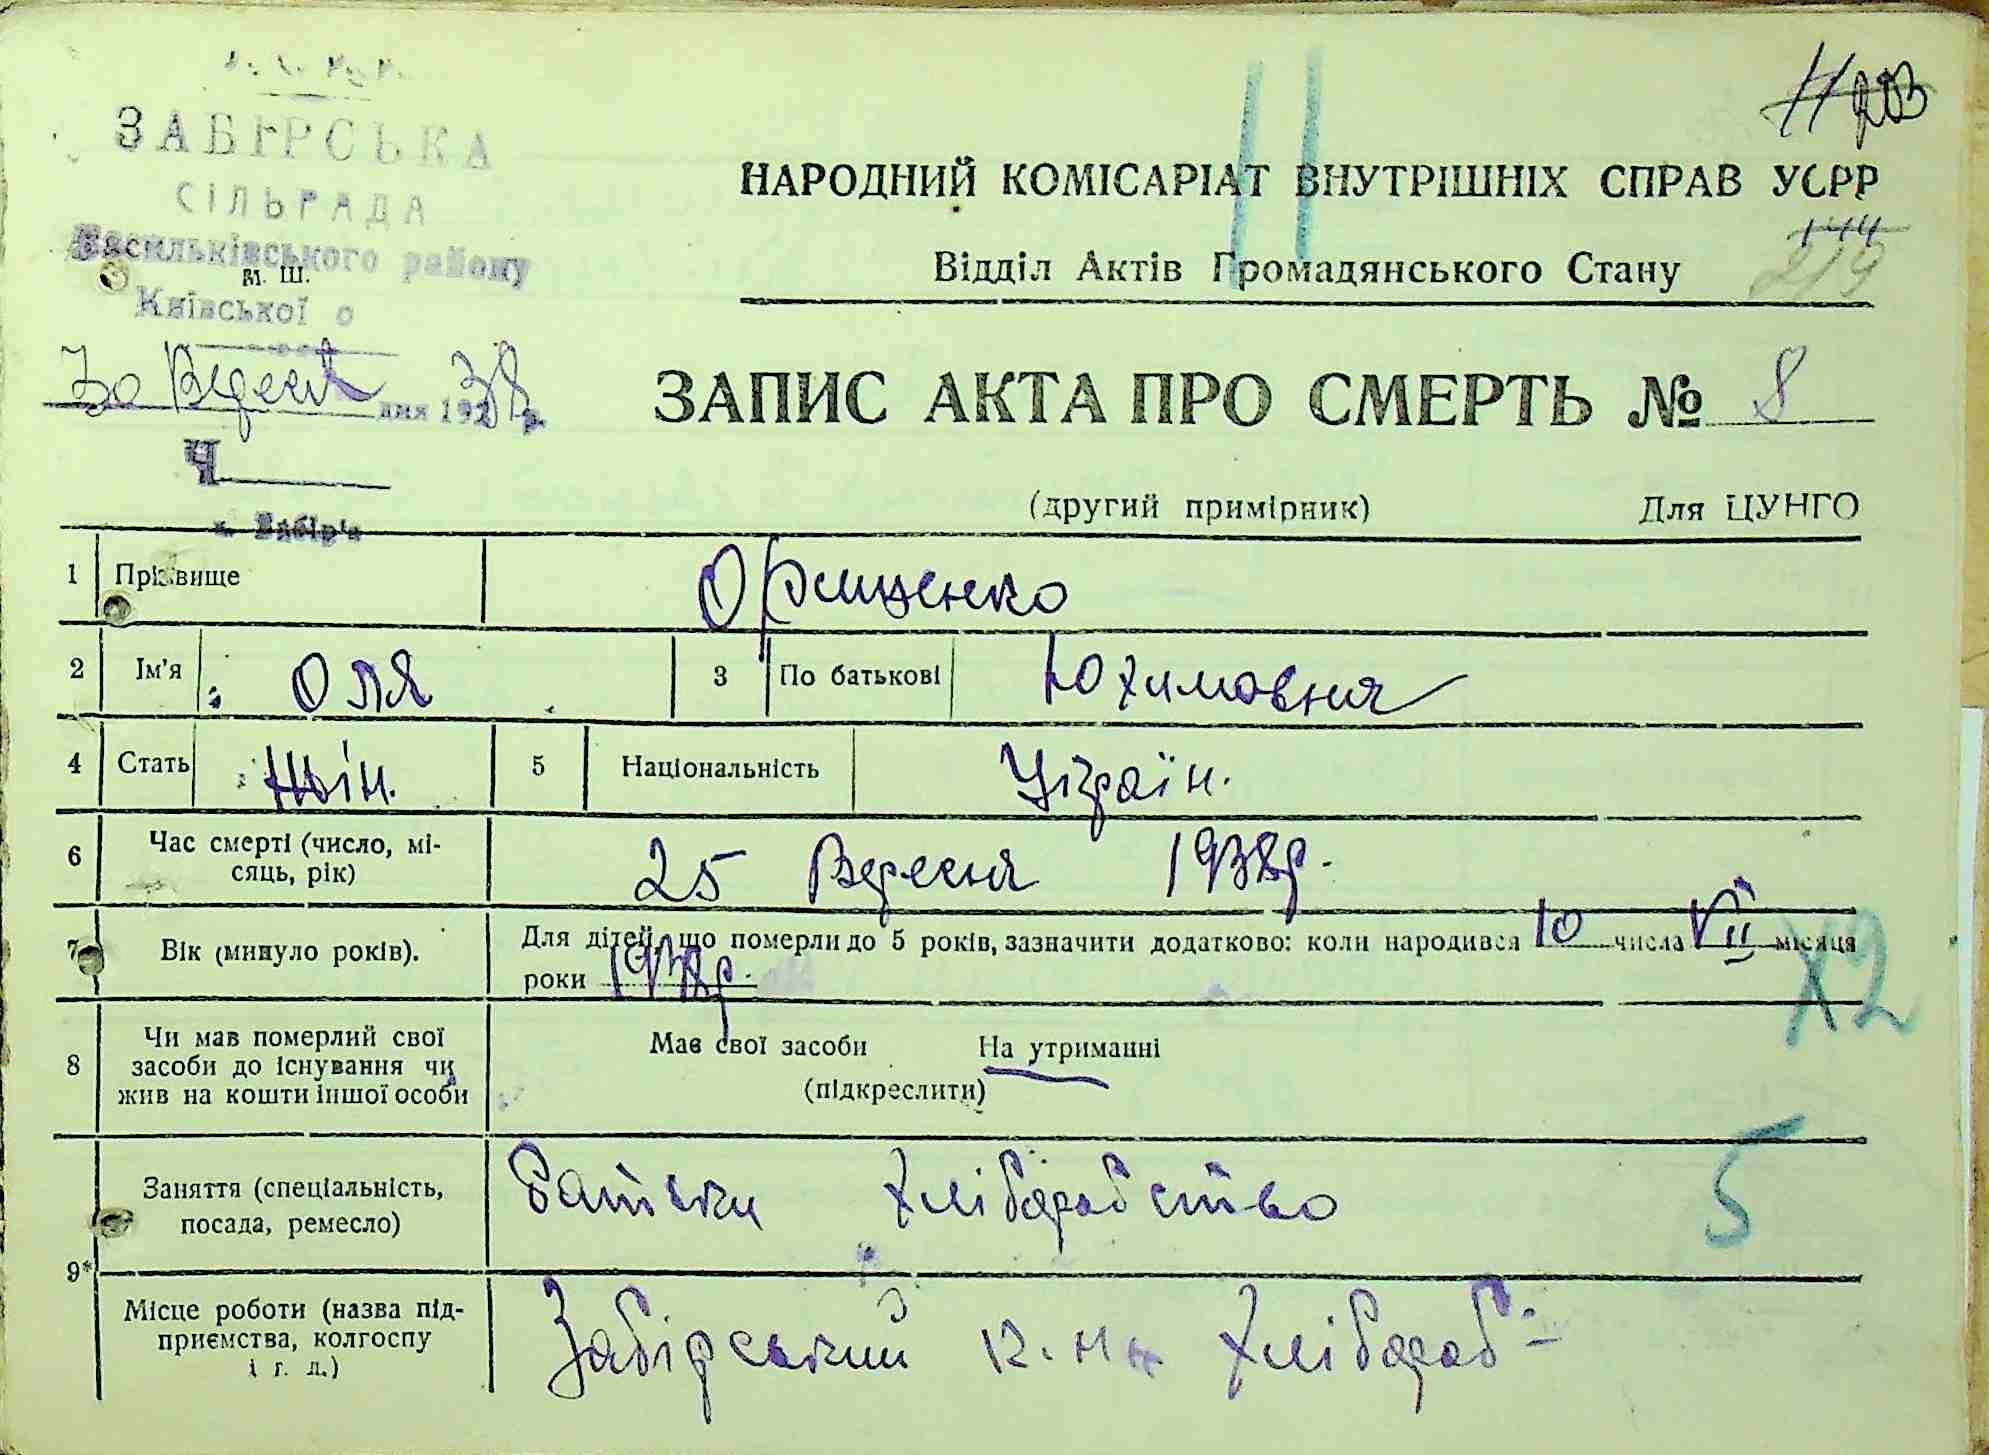 ЗАБІРСЬКА
СІЛЬРАДА
Васильківського району
М. Ш.
Київської о
30 Вересня дня 1938 р.
Ч.
с. Забір'я
11
НАРОДНИЙ КОМІСАРІАТ ВНУТРІШНІХ СПРАВ УСРР
144
219
Відділ Актів Громадянського Стану
ЗАПИС АКТА ПРО СМЕРТЬ № 8
(другий примірник) Для ЦУНГО
1 Прізвище Орищенко
2 Ім'я Оля 3 По батькові Юхимовна
4 Стать жін. 5 Національність Україн.
6 Час смерті (число, мі-
сяць, рік) 25 Вересня 1938р.
7 Вік (минуло років). Для дітей, що померли до 5 років, зазначити додатково: коли народився 10 числа VII місяця
роки 1938р.
X2
8 Чи мав померлий свої
засоби до існування чи
жив на кошти іншої особи
Має свої засоби На утриманні
(підкреслити)
9*
Заняття (спеціальність,
посада, ремесло) Батьки хліборобство
5
Місце роботи (назва під-
приємства, колгоспу
і т. д.) Забірський к. Хлібороб